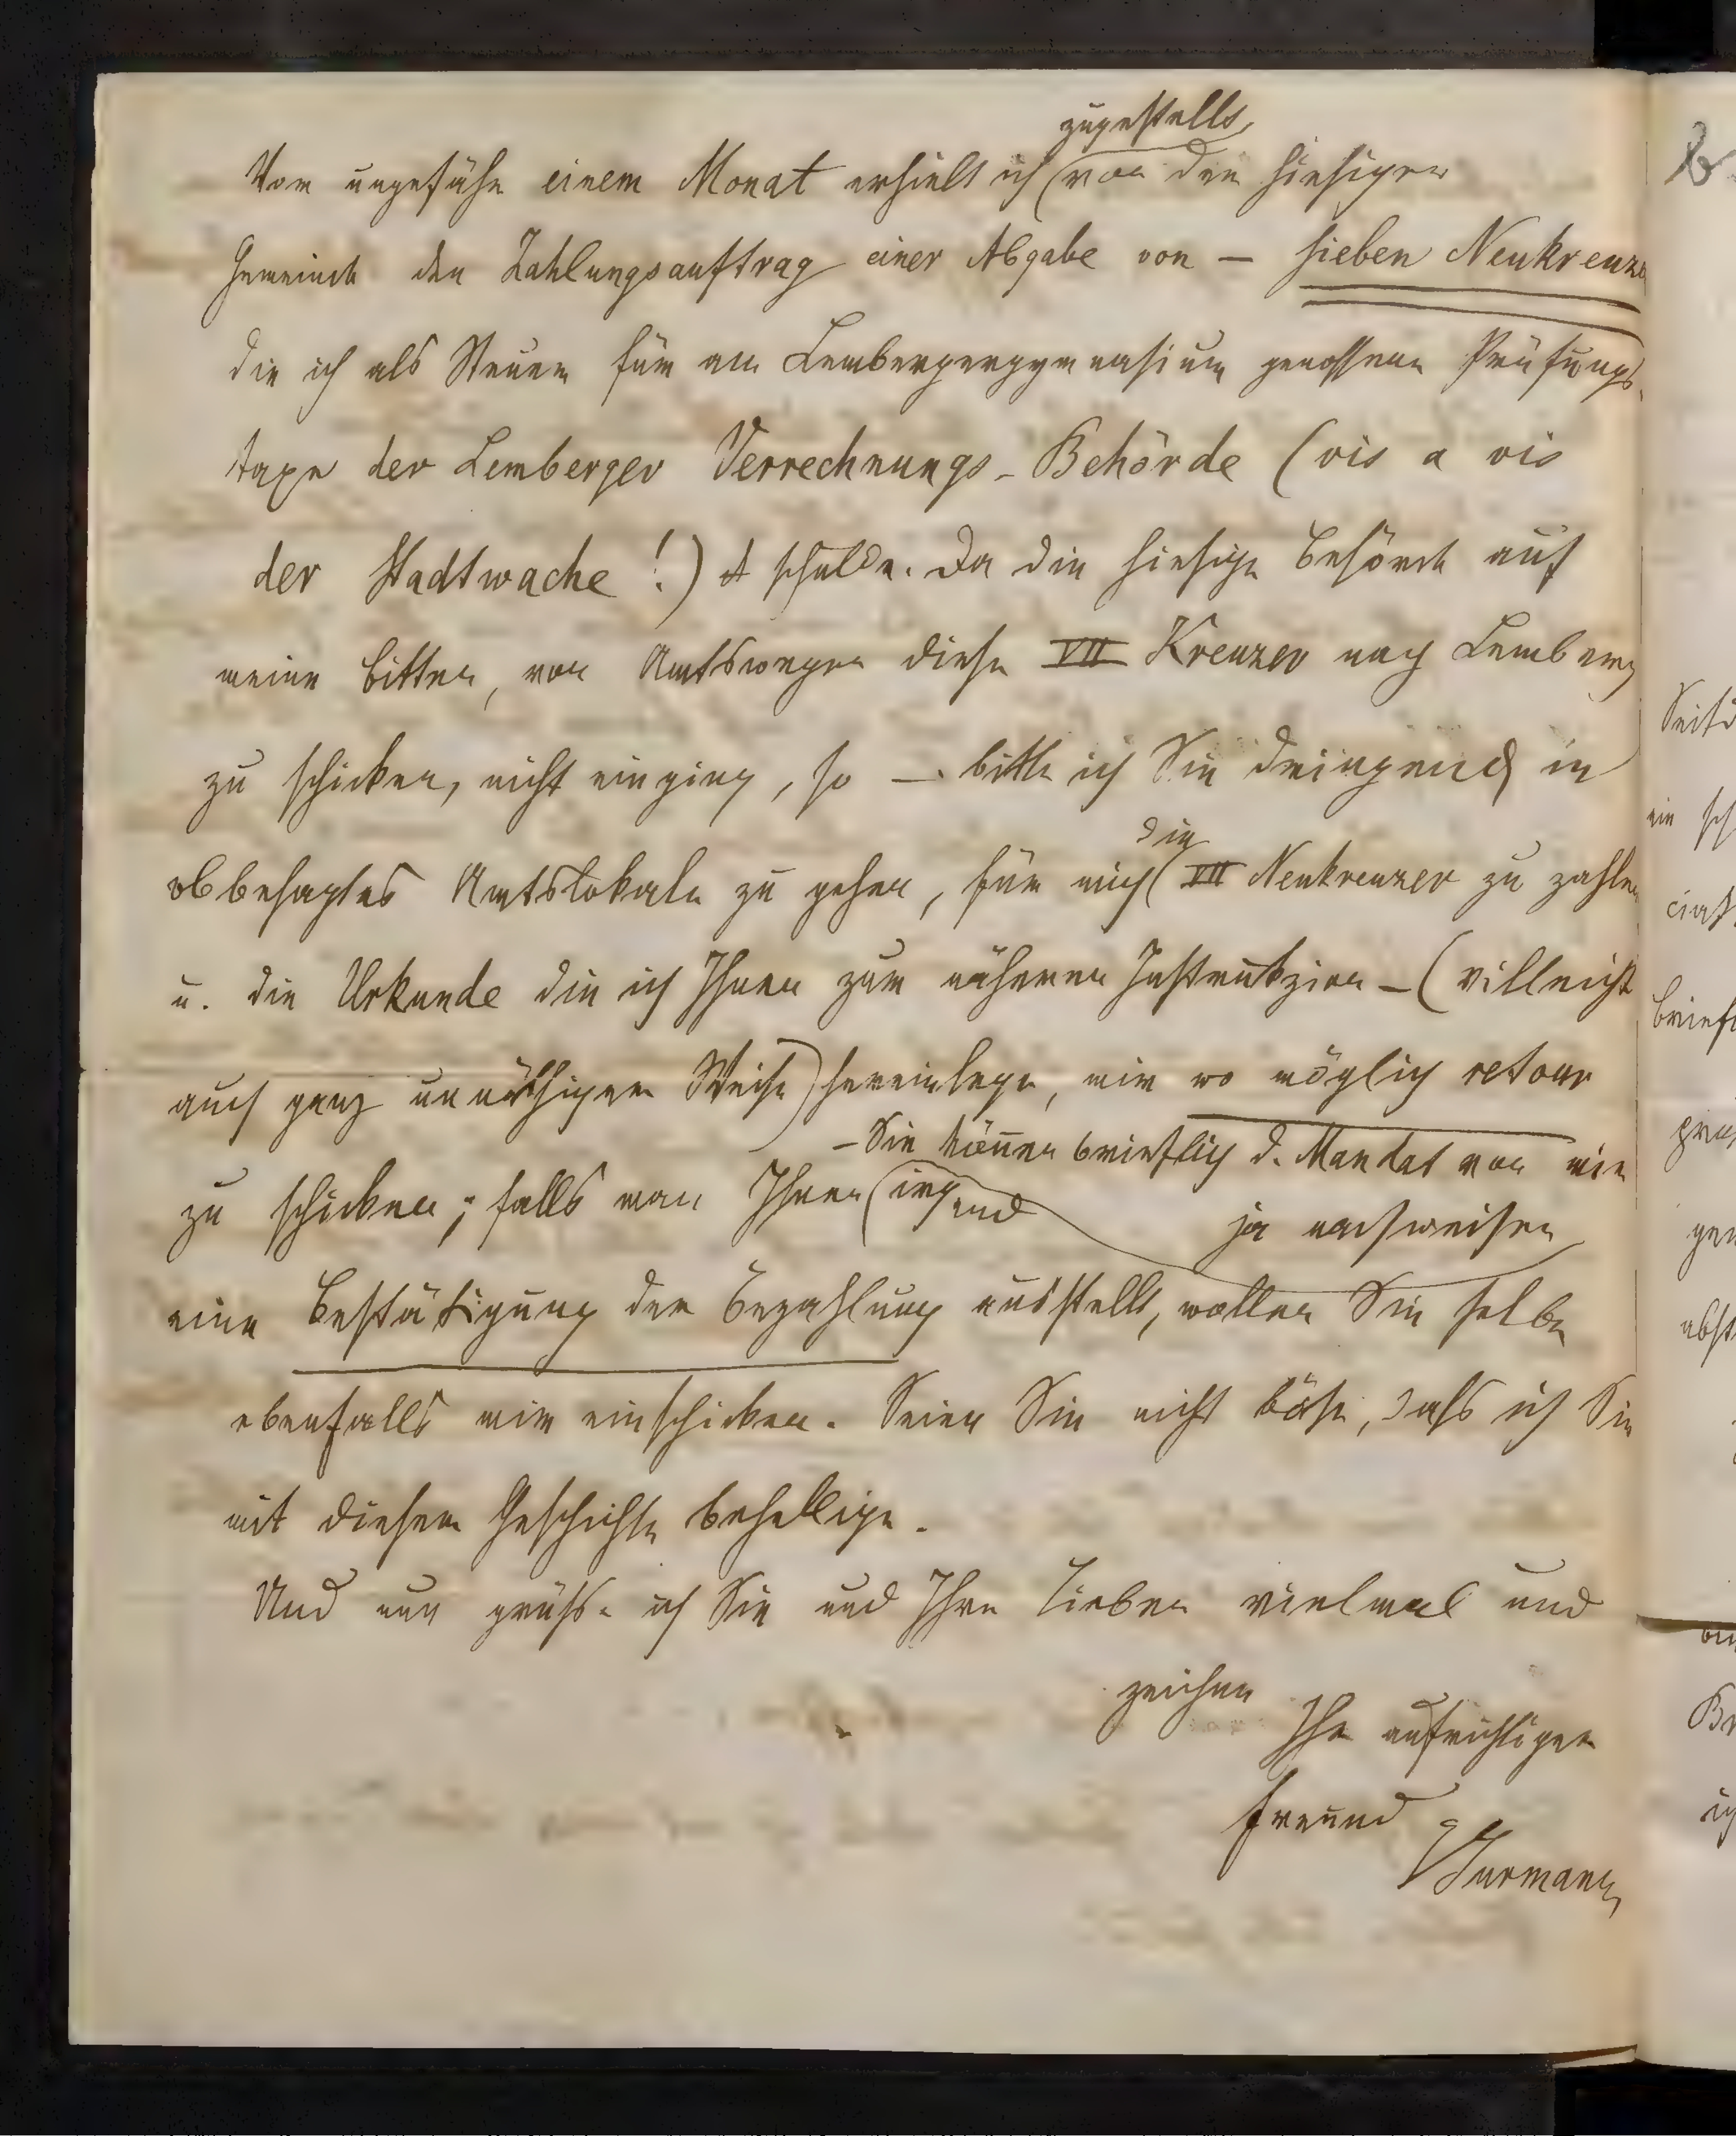 zugestellt
Vor ungefähr einem Monat erhielt ich von der hiesigen
Gemeinde den Zahlungsauftrag einer Abgabe von — sieben Neukreuze
die ich als Steuer für am Lembergergymnasium genossene Prüfungs-
taxe der Lemberger Verrechnungs-Behörde (vis a vis
der Stadtwache!) schulde. Da die hiesige Behörde auf
meine Bitten, von Amtswegen diese VII Kreuzer nach Lemberg
zu schicken, nicht einging, so — bitte ich Sie dringend in
die
obbesagtes Amtslokale zu gehen, für mich VII Neukreuzer zu zahlen
u. die Urkunde die ich Ihnen zur näheren Instrukzion — (villeicht
auch ganz unnöthiger Weise) hereinlege, mir wo möglich retour
— Sie können brieflich d. Mandat von mir
zu schicken; falls man Ihnen irgend
ja nachweisen
eine Bestätigung der Bezahlung ausstellt, wollen Sie selbe
ebenfalls mir einschicken. Seien Sie nicht böse, dass ich Sie
mit dieser Geschichte behellige.
Und nun grüsse ich Sie und Ihre Lieben vielmal und
zeichne
Ihr aufrichtiger
Freund
Surmann
Br